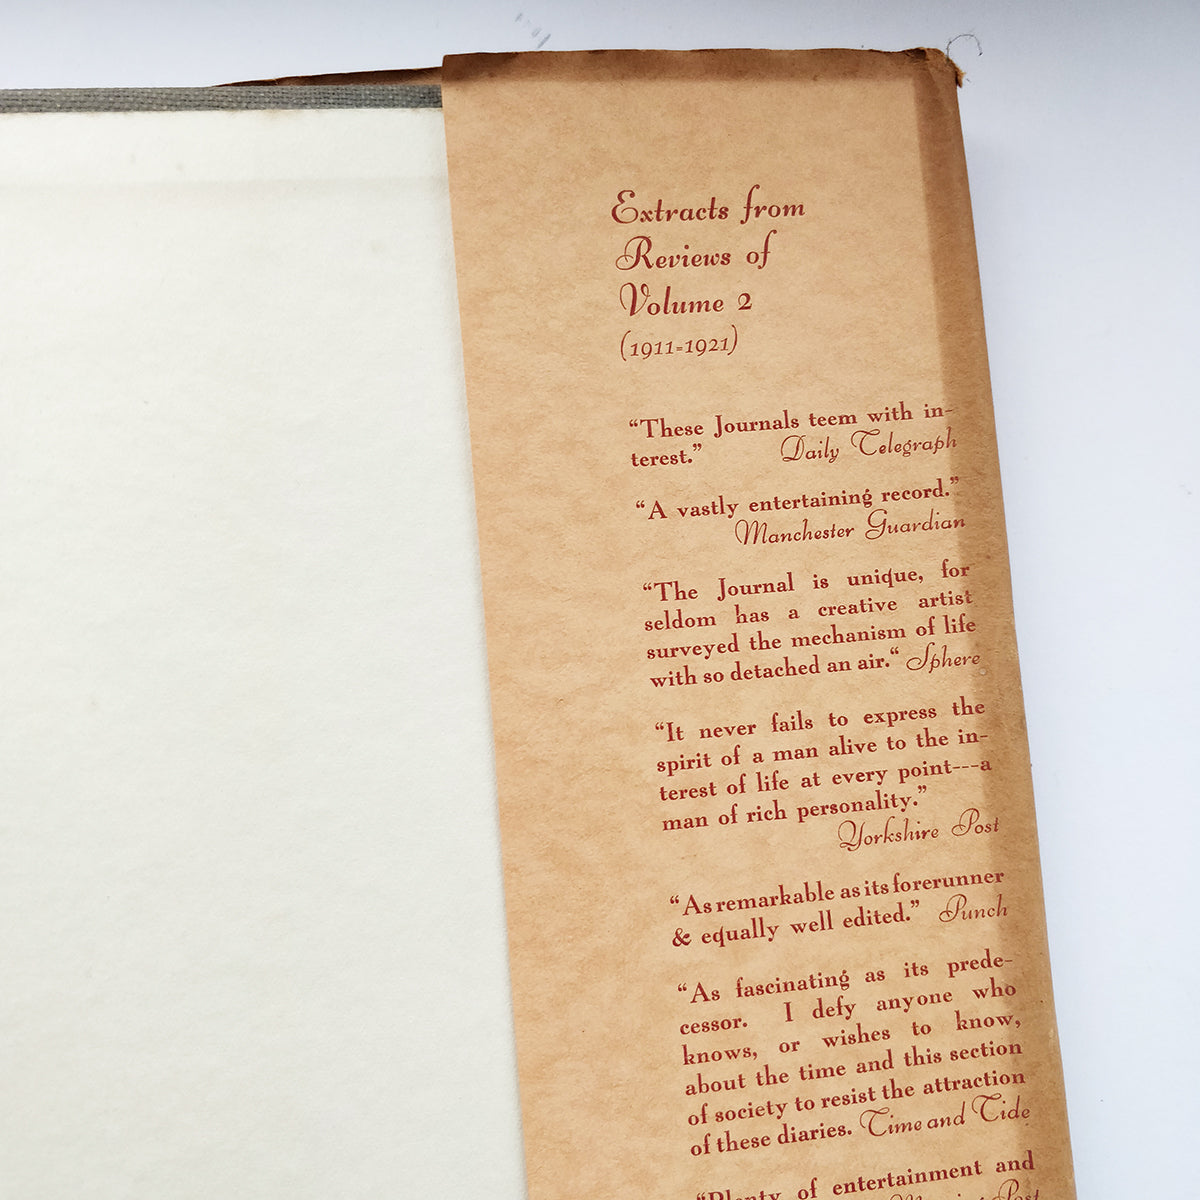 Extracts from
Reviews of
Volume 2
(1911-1921)
“These Journals teem with in-
terest.” Daily Telegraph
“A vastly entertaining record.”
Manchester Guardian
“The Journal is unique, for
seldom has a creative artist
surveyed the mechanism of life
with so detached an air.“ Sphere
“It never fails to express the
spirit of a man alive to the in-
terest of life at every point---a
man of rich personality.”
Yorkshire Post
“As remarkable as its forerunner
& equally well edited.” Punch
“As fascinating as its prede-
cessor. I defy anyone who
knows, or wishes to know,
about the time and this section
of society to resist the attraction
of these diaries. Time and Tide
“Plenty of entertainment and
Post